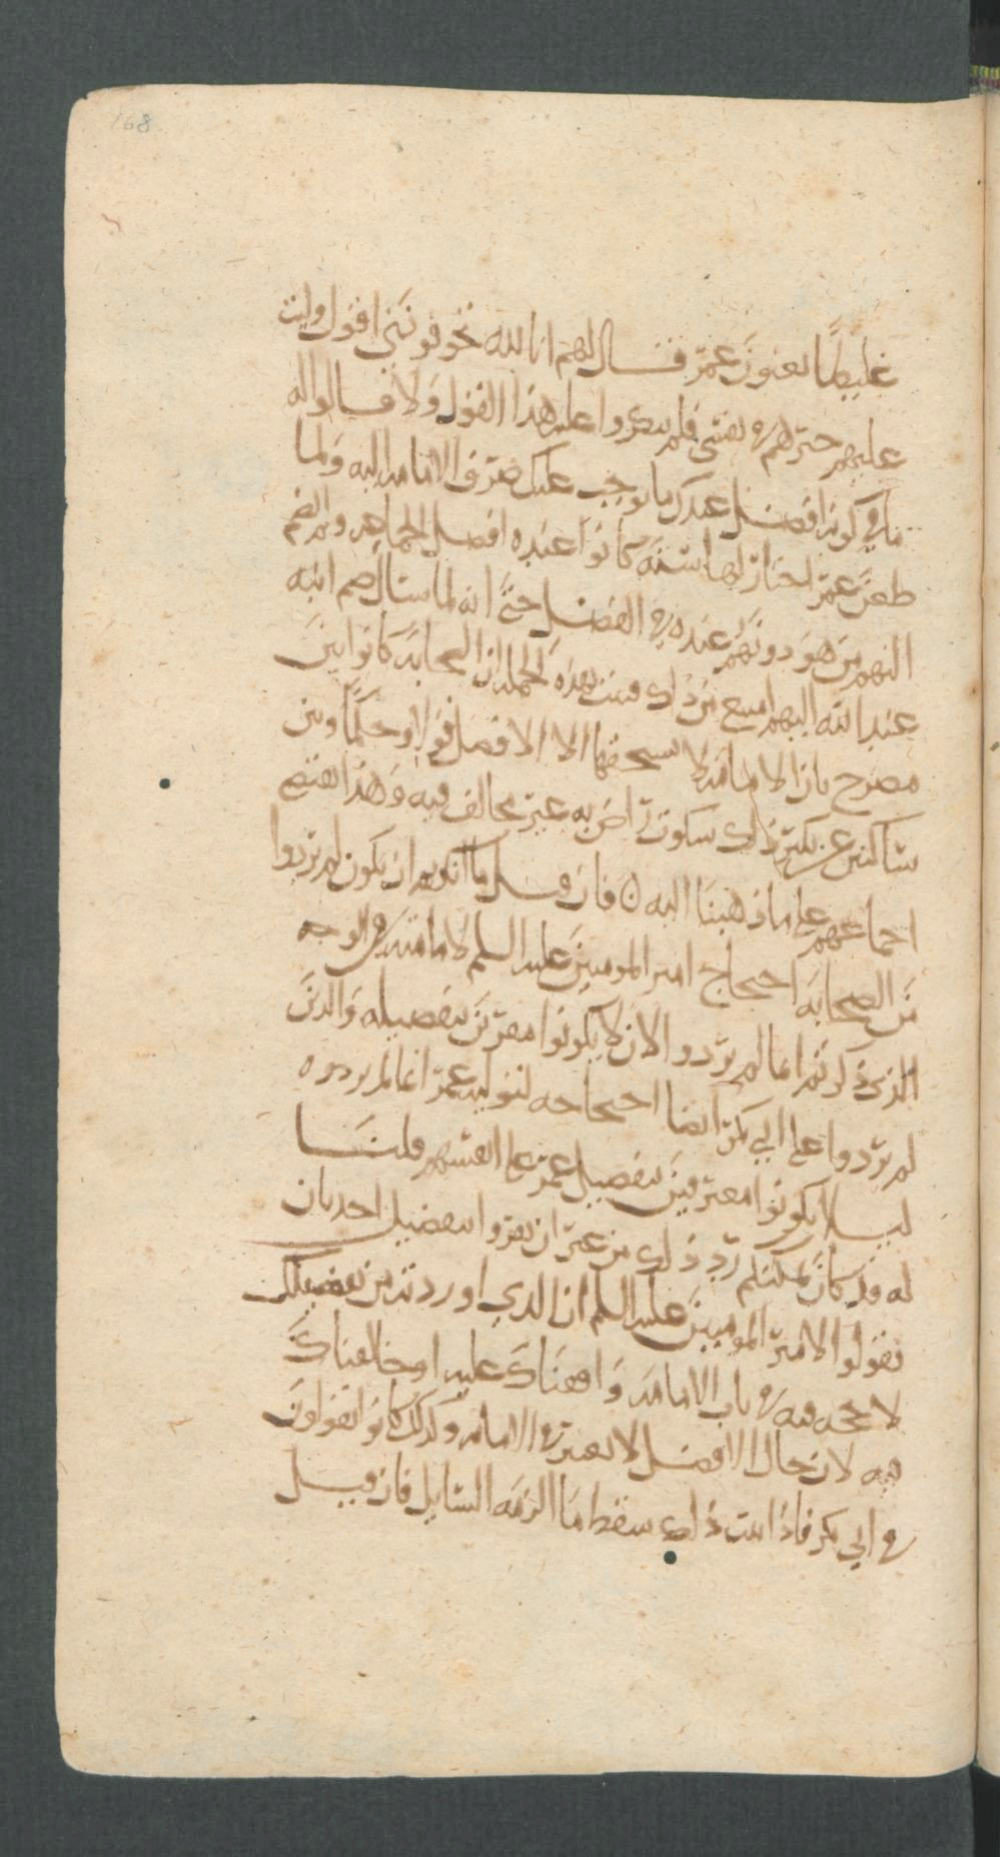 168
غليظا يعنون عمر فقال لهم ابالله تخوفونني اقول وليت
عليهم خيرهم في نفسي فلم ينكروا عليه هذا القول ولا قالوا له
ما في كونه افضل عندك ما يوجب عليك صرف الامامة اليه ولما
طعن عمر اختار لها ستة كانوا عنده افضل الجماعة ولم يضم
اليهم من هو دونهم عنده في الفضل حتى انه لما سال ضم ابنه
عبد الله اليهم امتنع من ذلك فثبت بهذه الجملة ان الصحابة كانوا بين
مصرح بان الامامة لا يستحقها الا الافضل قولا وحكما وبين
ساكت عن نكير ذلك سكوت راض به غير مخالف فيه وهذا يقتضي
اجماعهم على ما ذهبنا اليه ۞ فان قيل ما انكرتم ان يكون لم يردوا
من الصحابة احتجاج امير المومنين عليه السلم لامامته في الوجه
الذي ذكرتم انما لم يردوا لان لا يكونوا مقرين بتفضيله والذين
لم يردوا على ابي بكر ايضا احتجاجه لتوليه عمر انما لم يردوه
ليلا يكونوا معترفين بتفضيل عمر على انفسهم قلنا
له قد كان يمكنهم رد ذلك من غير ان يقروا بتفضيل احد بان
يقولوا لامير المومنين عليه السلم ان الذي اوردته من تفضيلك
لا حجة فيه في باب الامامة وافقناك عليه او خالفناك
فيه لان حال الافضل لا يعتبر في الامامة وكذلك كانوا يقولون
في ابي بكر فاذا ثبت ذلك سقط ما الزمه السايل فان قيل